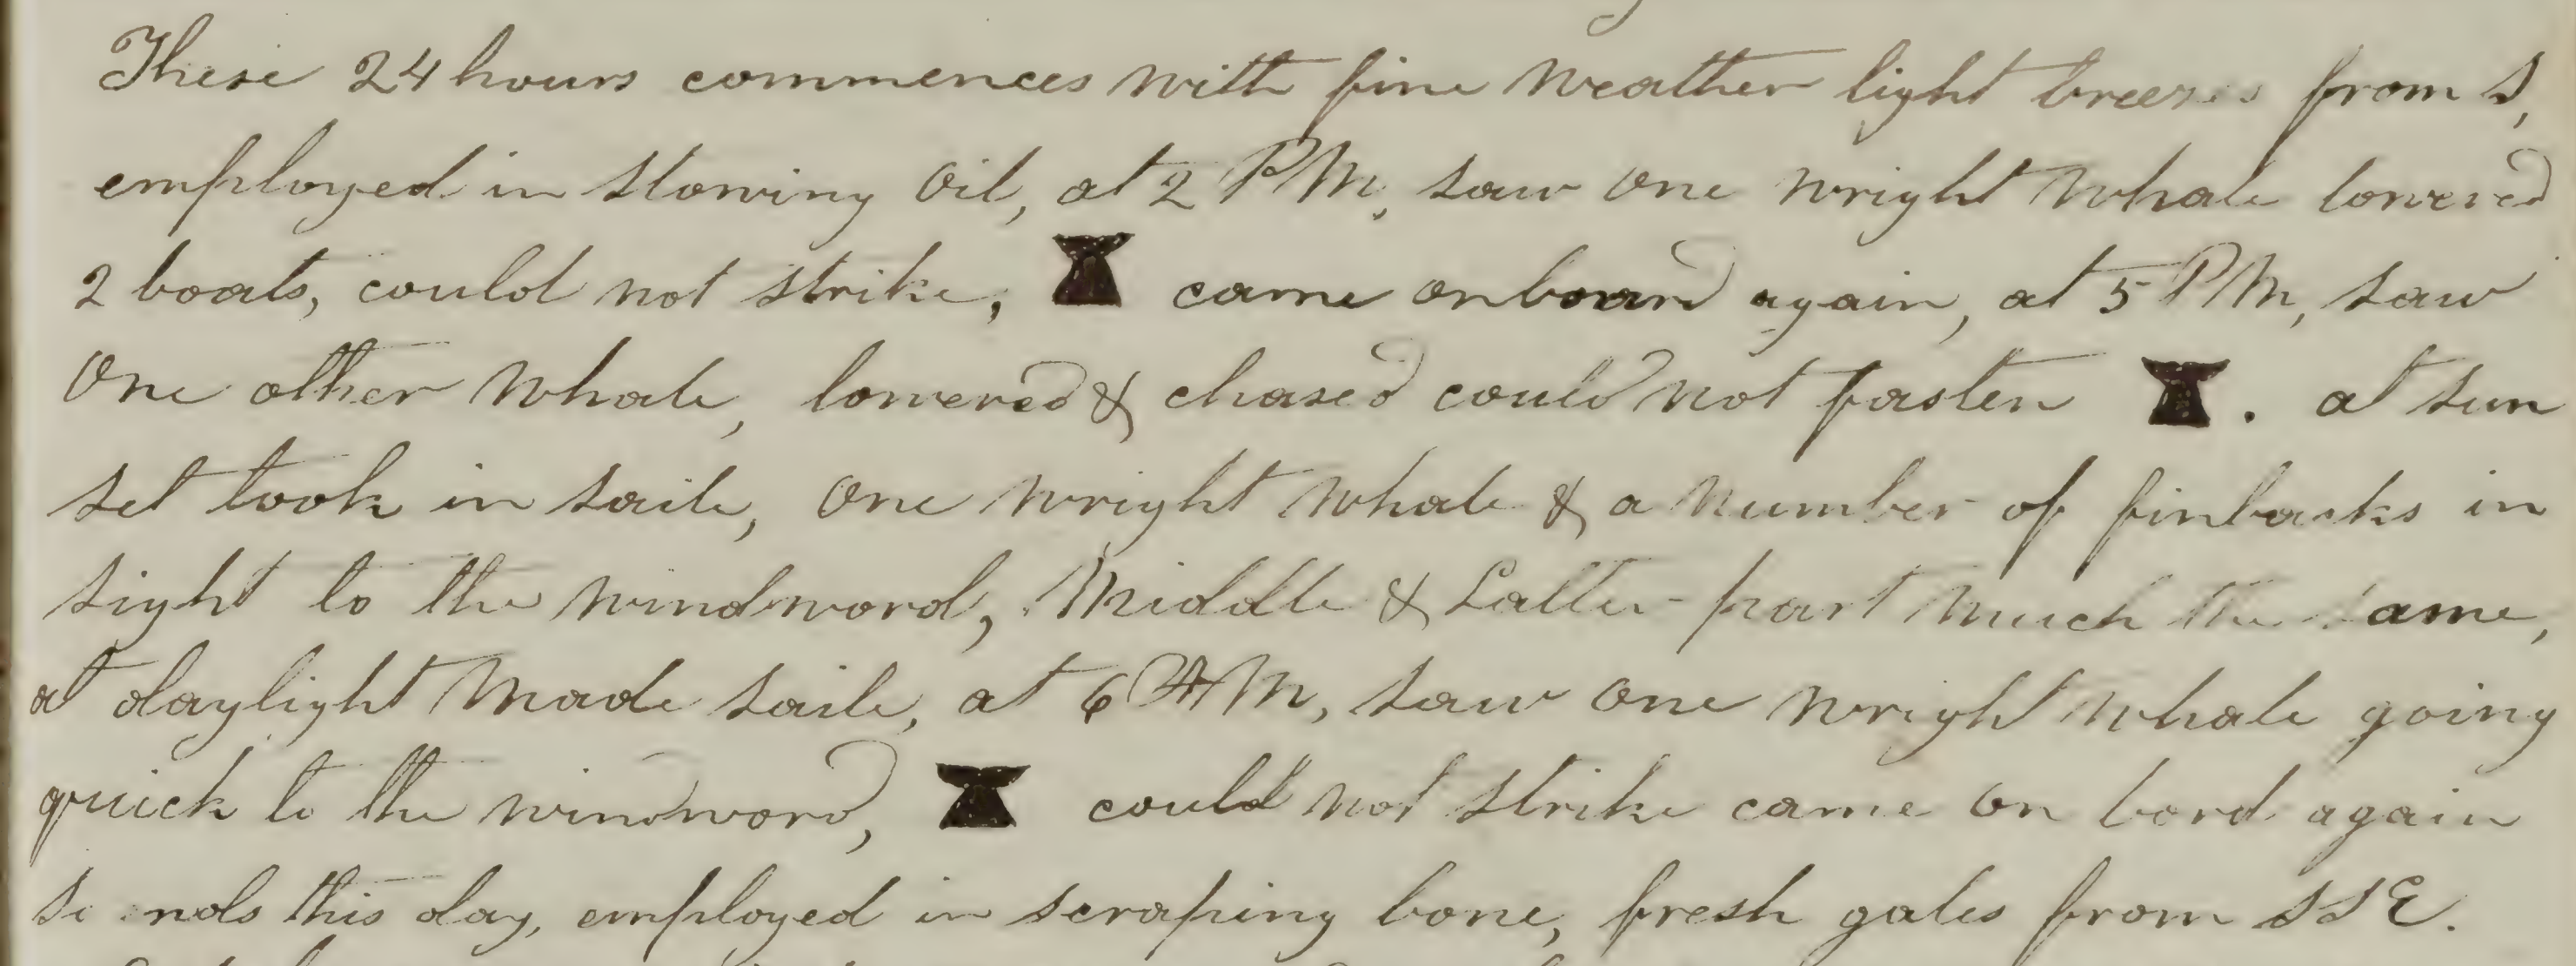 These 24 hours commences with fine weather light breezes from S,
employed in stowing Oil, at 2 PM, saw one wright whale lowered
2 boats, could not strike, came onboard again, at 5 PM, saw
One other whale, lowered & chased could not fasten . at sun
set took in saile, one wright whale & a number of finbacks in
sight to the windword, Middle & Latter part much the same,
at daylight made saile, at 6 AM, saw one wright whale going
quick to the windword, could not strike came on bord again
So ends this day, employed in scraping bone, fresh gales from SSE.